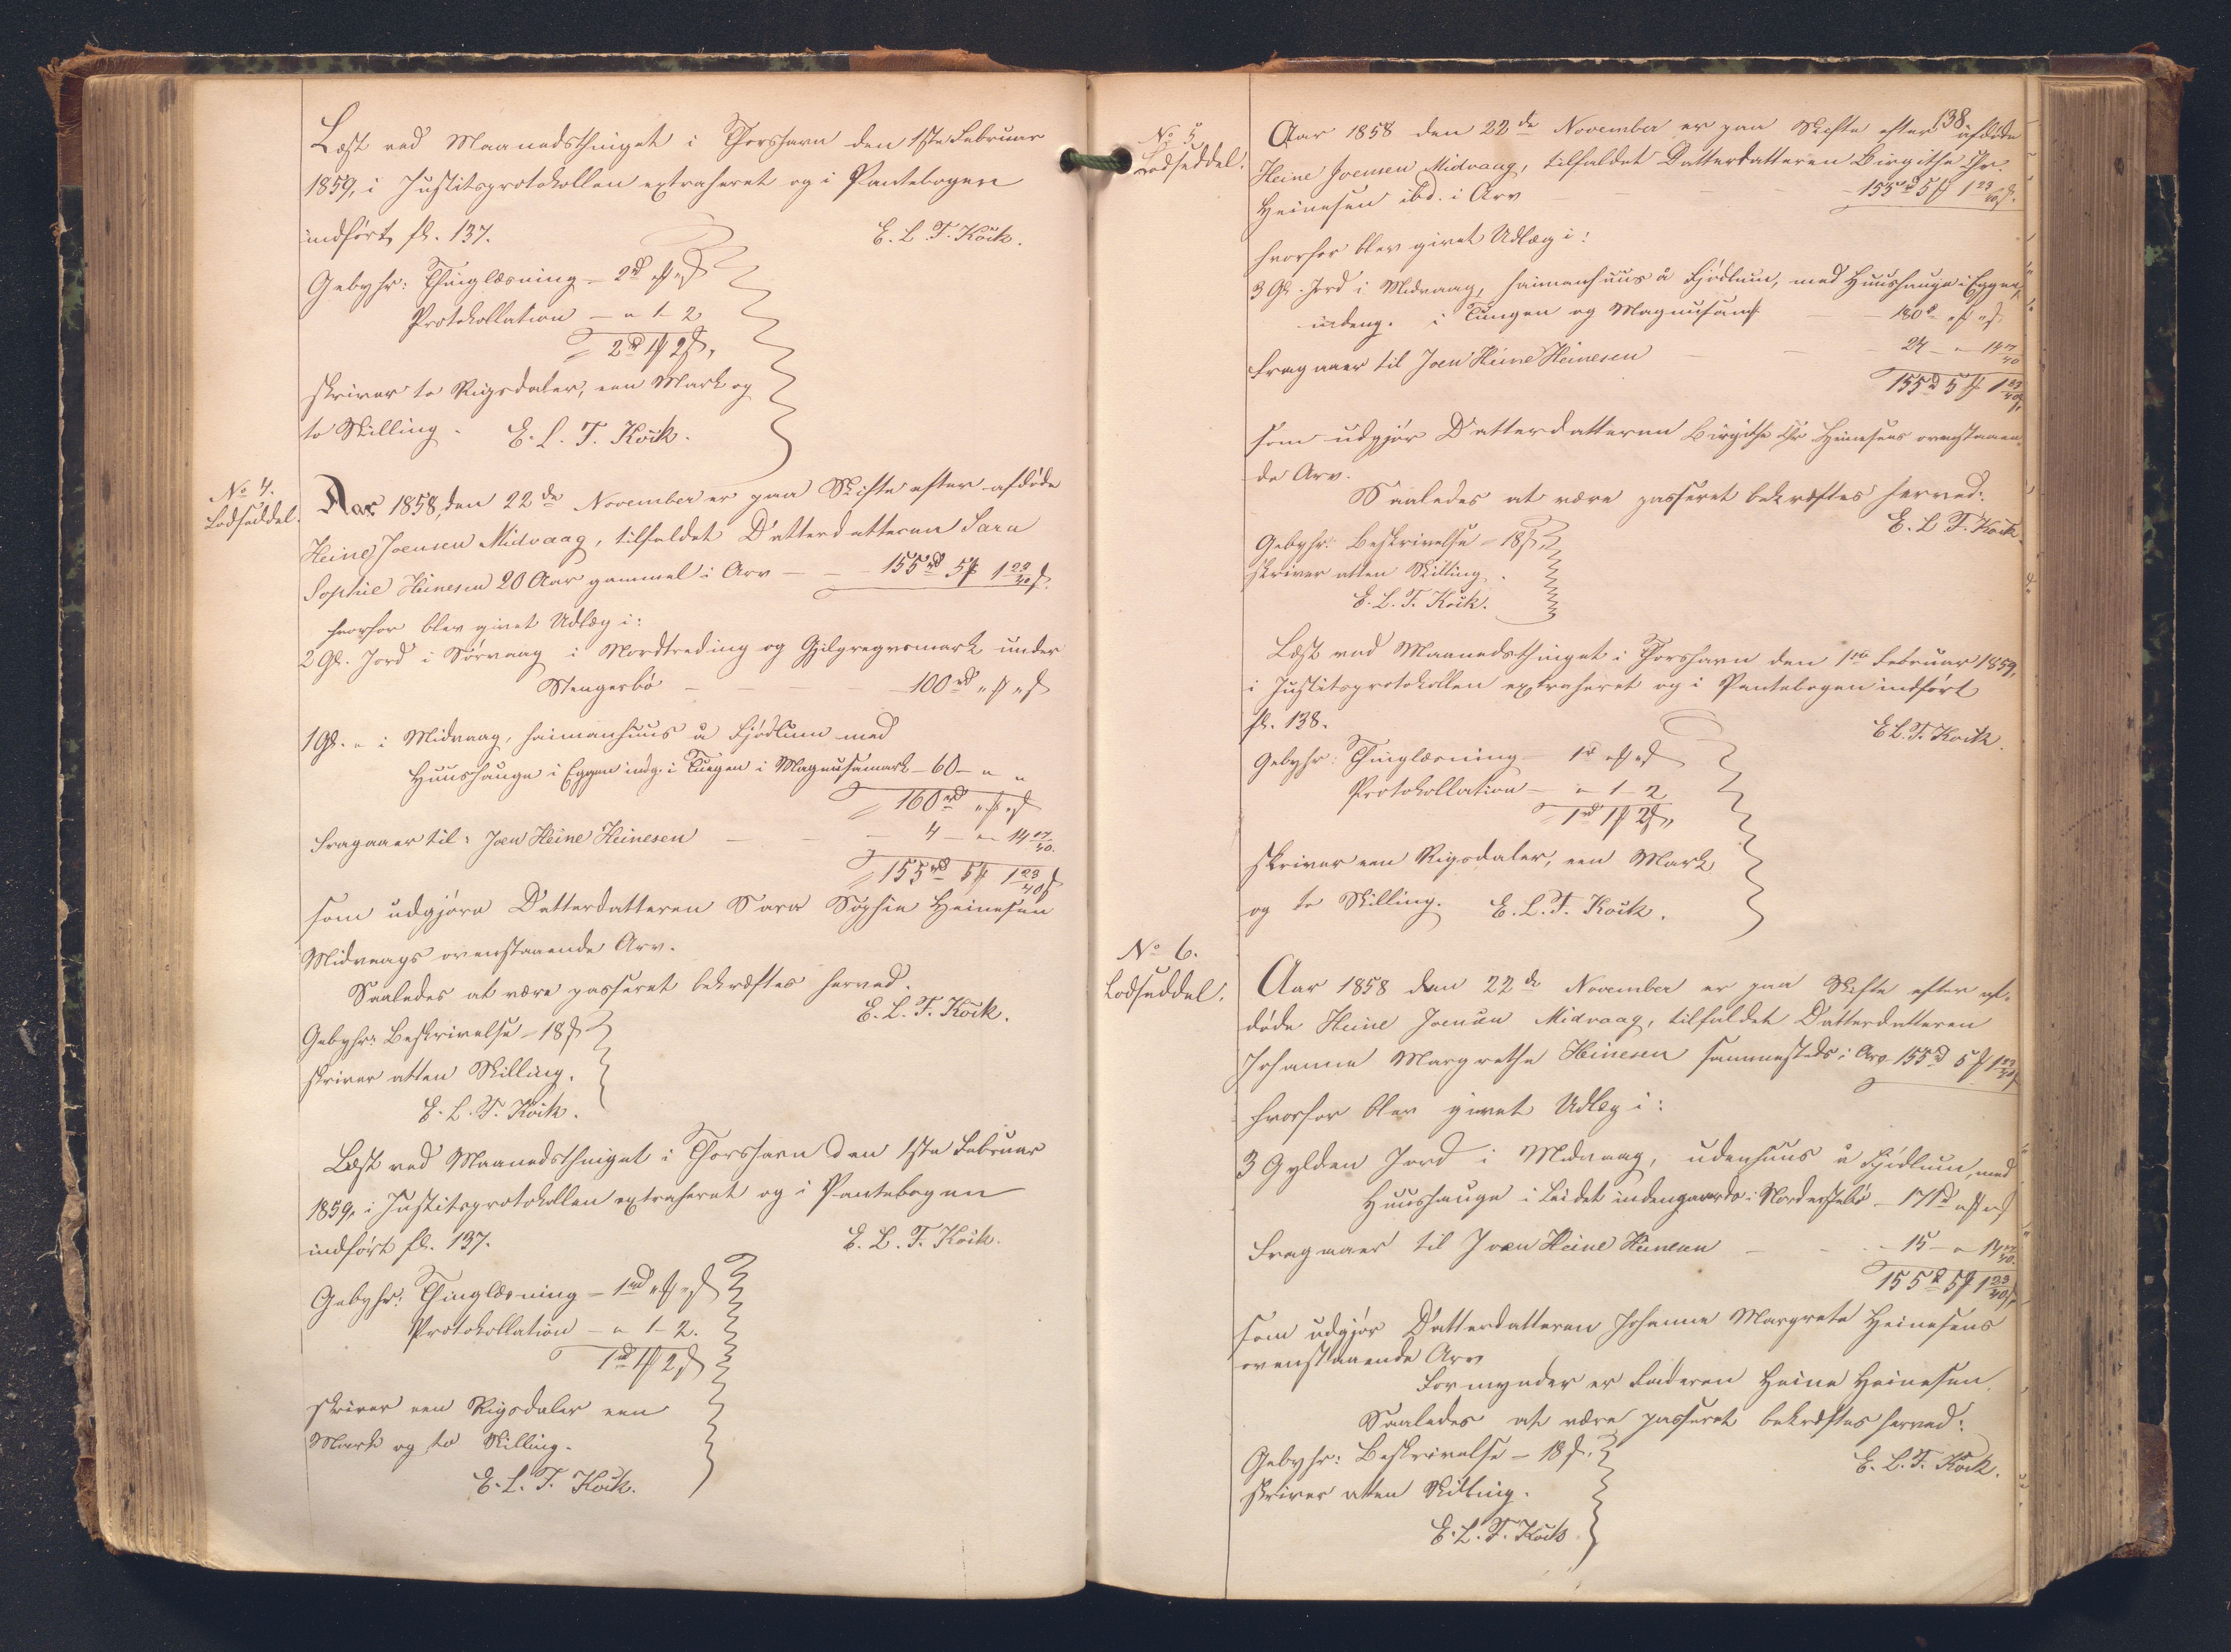 Læst ved Maanedsthinget i Thorshavn den 1ste Februar
1859, i Justitsprotokollen extraheret og i Pantebogen
indført fl. 137.
E. L. T. Köck.
Gebyhr: Thinglæsning – 2rd „ß „s
Protokollation – „ 1 – 2
2rd 1ß 2s,
skriver to Rigsdaler, een Mark og
to Skilling. E. L. T. Köck.
No 4.
Lodseddel.
Aar 1858, den 22de November er paa Skifte efter afdöde
Heine Joensen Midvaag, tilfaldet Datterdatteren Sara
Sophie Heinesen 20 Aar gammel i Arv – – 155rd 5ß 1 23/40 s.
hvorfor blev givet Udlæg i:
2 Gl. Jord i Sörvaag i Nordtreding og under
Stengerbö – – – 100rd „ß „s
1 Gl. „ i Midvaag, heimanhuus å Fjødlum med
Huushauge i Eggen indg. i Tungen i Magnusamark – 60 – „ „
160rd „ß „s
Fragaaer til: Joen Heine Heinesen – – 4 – „ 14 17/40.
155rd 5ß 1 23/40 s
som udgjöre Datterdatteren Sara Sophie Heinesen
Midvaags ovenstaaende Arv.
Saaledes at være passeret bekræftes herved.
E. L. T. Köck.
Gebyhr: Beskrivelse – 18 s
skriver atten Skilling.
E. L. T. Köck.
Læst ved Maanedsthinget i Thorshavn den 1ste Februar
1859, i Justitsprotokollen extraheret og i Pantebogen
indført fl. 137.
E. L. T. Köck.
Gebyhr: Thinglæsning – 1rd „ß „s
Protokollation – „ 1 – 2.
1rd 1ß 2s
skriver een Rigsdaler een
Mark og to Skilling.
E. L. T. Köck.
138.
No 5.
Lodseddel.
Aar 1858 den 22de November er paa Skifte efter afdöde
Heine Joensen Midvaag, tilfaldet Datterdatteren Birgithe Chr.
Heinesen ibd. i Arv – – – 155rd 5ß 1 23/40 s.
hvorfor blev givet Udlæg i:
3 Gl. Jord i Midvaag, heimanhuus å Fjödlum, med Huushauge i Eggen,
indeng. i Tungen og – – 180rd „ß „s.
Fragaaer til Joen Heine Heinesen – – – 24 – „ 14 17/40
155rd 5ß 1 23/40 s,
som udgjör Datterdatteren Birgithe Chr. Heinesens ovenstaaen-
de Arv.
Saaledes at være passeret bekræftes herved:
E. L. T. Köck.
Gebyhr: Beskrivelse – 18 s.
skriver atten Skilling.
E. L. T. Köck.
Læst ved Maanedsthinget i Thorshavn den 1ste Februar 1859,
i Justitsprotokollen extraheret og i Pantebogen indført
fl. 138.
E. L. T. Köck.
Gebyhr: Thinglæsning – 1rd „ß „s
Protokollation – „ 1 – 2
1rd 1ß 2s,
skriver een Rigsdaler, een Mark
og to Skilling. E. L. T. Köck.
No 6.
Lodseddel.
Aar 1858 den 22de November er paa Skifte efter af-
döde Heine Joensen Midvaag, tilfaldet Datterdatteren
Johanne Margrethe Heinesen sammesteds i Arv 155rd 5ß 1 23/40 s
hvorfor blev givet Udlæg i:
3 Gylden Jord i Midvaag, udenhuus å Fjödlum, med
Huushauge i Leidet indengaards i – 171rd „ß „s
Fragaaer til Joen Heine Heinesen – – 15 – „ 14 17/40.
155rd 5ß 1 23/40 s,
som udgjör Datterdatteren Johanne Margrete Heinesens
ovenstaaende Arv
Formynder er Faderen Heine Heinesen.
Saaledes at være passeret bekræftes herved:
E. L. T. Köck.
Gebyhr: Beskrivelse – 18 s.
skriver atten Skilling.
E. L. T. Köck